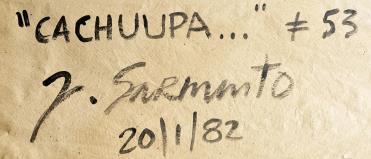 "CACHUUPA..." # 53
J. SARMENTO
20/1/82